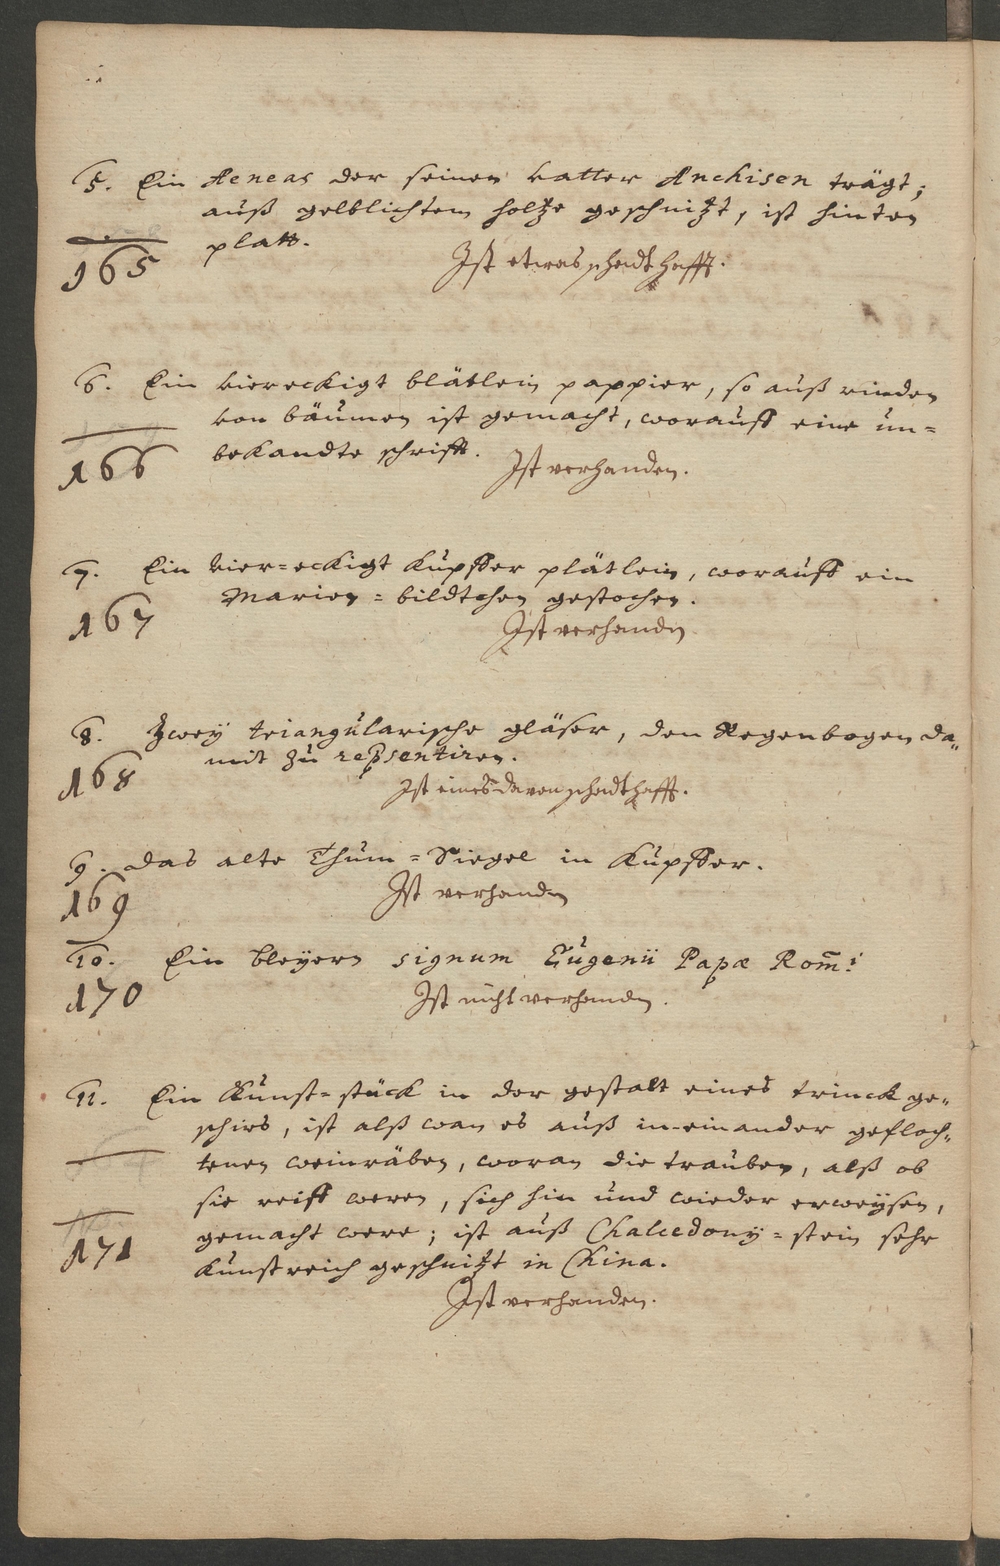 5. Ein Aeneas der seinen vatter Anchisen trägt;
auß gelblichtem holtze geschnitzt, ist hinten
platt.
165
Ist etwas schadthafft.
6. Ein viereckigt blätlein pappier, so auß rinden
von bäumen ist gemacht, worauff eine un=
bekandte schrifft.
166
Ist verhanden.
7. Ein vier=eckigt Kupffer plätlein, worauff ein
Marien=bildtchen gestochen.
167
Ist verhanden
8. Zwey triangularische gläser, den Regenbogen da„
mit zu repsentiren.
168
Ist eines davon schadthafft.
9. Das alte Thum=Siegel in Kupffer.
169
Ist verhanden
10. Ein bleyern signum Eugenii Papæ Rom̄i
170
Ist nicht verhanden.
11. Ein Kunst=stück in der gestalt eines trinck ge„
schirs, ist alß wan es auß in-einander gefloch„
tenen weinräben, woran die trauben, alß ob
sie reiff weren, sich hin und wieder erweysen,
gemacht were; ist auß Chalcedony=stein sehr
171
Kunstreich geschnitzt in China.
Ist verhanden.